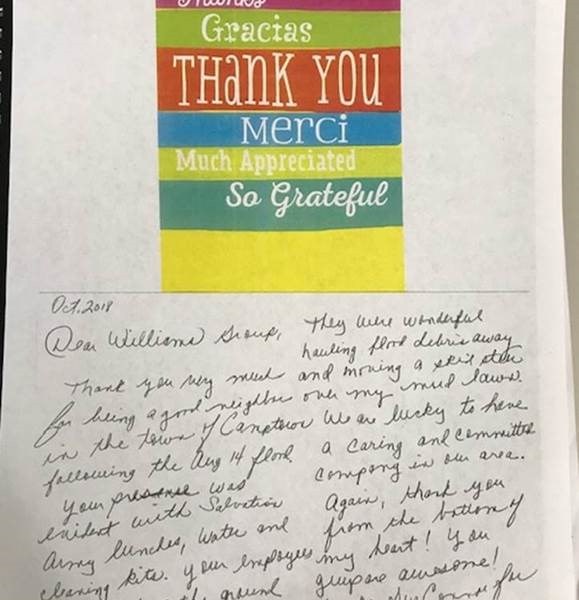 Thanks
Gracias
THanK YOU
Merci
Much Appreciated
So Grateful
Oct. 2018
Dear Williams Group,
Thank you very much
for being a good neighbor
in the town of Camptown
following the Aug 14 flood.
Your presense was
evident with Salvation
Army lunches, water and
cleaning kits. Your employees
the ground
They were wonderful
hauling flood debris away
and moving a skid steer
over my mud lawn.
We are lucky to have
a caring and committed
company in our area.
Again, thank you
from the bottom of
my heart! You
guys are awesome!
for